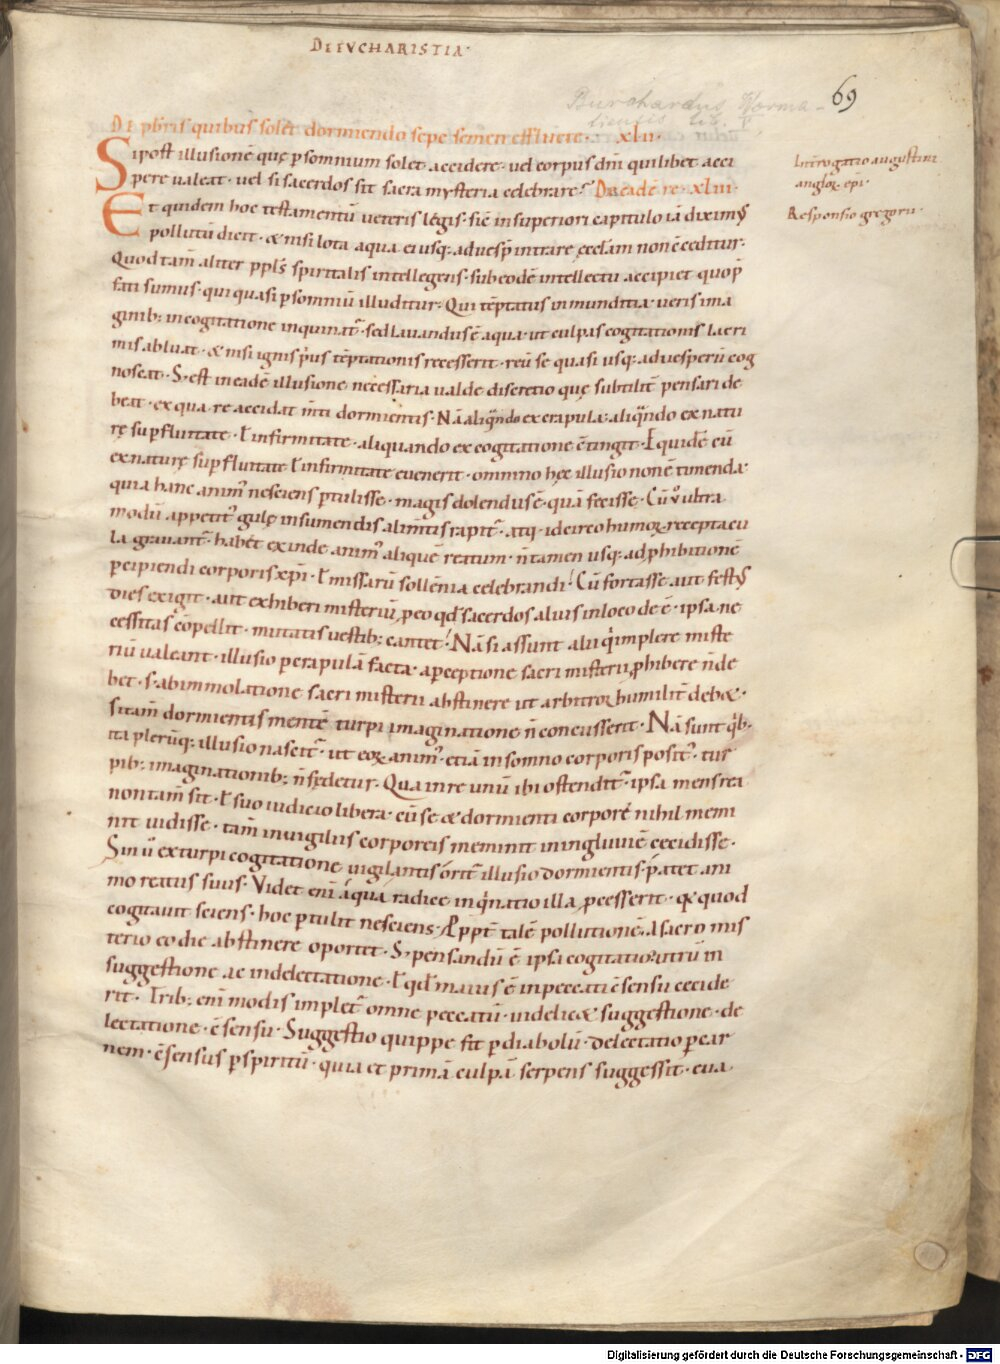 DE EVCHARISTIA·
69
Burchardus Worma-
tiensis lib. V
De pb̄ris quibus solet dormiendo sepe semen effluere· xlii·
Si post illusionē quę ꝑ somnium solet accidere· uel corpus dn̄i quilibet acci
pere ualeat· uel si sacerdos sit sacra mysteria celebrare? De eadē re· xliii·
Interrogatio augustini
angloꝝ ep̄i·
Et quidem hoc testamentū ueteris legis· sic̄ in superiori capitulo iā diximꝰ
Responsio gregorii·
pollutū dicit· & nisi lota aqua ei usq; ad uesꝑ intrare ęcclam non c̄ceditur·
Quod tam̄ aliter ppl̄s spiritalis intellegens· sub eodē intellectu accipiet quo p̄
fati sumus· qui quasi ꝑ somniū illuditur· Qui tēptatus inmunditia· ueris ima
ginib; in cogitatione inquinat᷑· sed lauandus ē aqua· ut culpas cogitationis lacri
mis abluat· & nisi ignis prius tēptationis recesserit· reū se quasi usq; ad uesperū cog
noscat· S; est in eadē illusione necessaria ualde discretio que subtilit̄ pensari de
beat· ex qua re accidat m̄ti dormientis· Nā aliqn̄do ex crapula· aliqn̄do ex natu
rę suꝑfluitate· ł infirmitate· aliquando ex cogitatione c̄tingit· Equidē cū
ex naturę suꝑfluitate ł infirmitate euenerit· omnino hęc illusio non ē timenda·
quia hanc animꝰ nesciens ꝑtulisse· magis dolendus ē· quā fecisse· Cū u̇ ultra
modū appetitꝰ gulę in sumendis alim̄tis rapit᷑· atq; idcirco humoꝝ receptacu
la grauant᷑· habet exinde animꝰ aliquē reatum· n̄ tamen usq; ad ꝓhibitionē
ꝑcipiendi corporis xp̄i· ł missarū sollēnia celebrandi· Cū fortasse aut festꝰ
dies exigit· aut exhiberi misteriū, ꝑeo qd̄ sacerdos alius in loco deē· ipsa ne
cessitas cōpellit· mutatis uestib; cantet· Nā si assunt alii qui implere miste
riū ualeant· illusio per apulā facta· a perceptione sacri misterii ꝓhibere n̄ de
bet· s; ab immolatione sacri misterii abstinere ut arbitror humilit̄ deb&·
si tam̄ dormientis mentē turpi imaginatione n̄ concusserit· Nā sunt qb;
ita plerūq; illusio nascit᷑· ut eoꝝ animꝰ· etiā in somno corporis positꝰ· tur
pib; imaginationib; n̄ fędetur· Qua in re unū ibi ostendit᷑· ipsa mens rea
non tam̄ sit· ł suo iudicio libera· cū se & dormienti corpore nihil memi
nit uidisse· tam̄ in uigiliis corporeis meminit in ingluuiē cecidisse·
Sin u̇ ex turpi cogitatione uigilantis orit᷑ illusio dormientis· patet ani
mo reatus suus· Videt eni᷑ a qua radice inqnatio illa ꝓcesserit· q& quod
cogitauit sciens· hoc ꝑtulit nesciens· Et ppt̄ talē pollutionē a sacro mis
terio eo die abstinere oportet· S; pensandū ē ipsa cogitatio utrū in
suggestione ac in delectatione· ł qd̄ maius ē in peccati c̄sensu cecide
rit· Trib; eni᷑ modis implet᷑ omne peccatū· uidelic& suggestione· de
lectatione· c̄sensu· Suggestio quippe fit ꝑ diabolū· delectatio ꝑ car
nem· c̄sensus ꝑ spiritū· quia et primā culpā serpens suggessit· eua
Digitalisierung gefördert durch die Deutsche Forschungsgemeinschaft - DFG